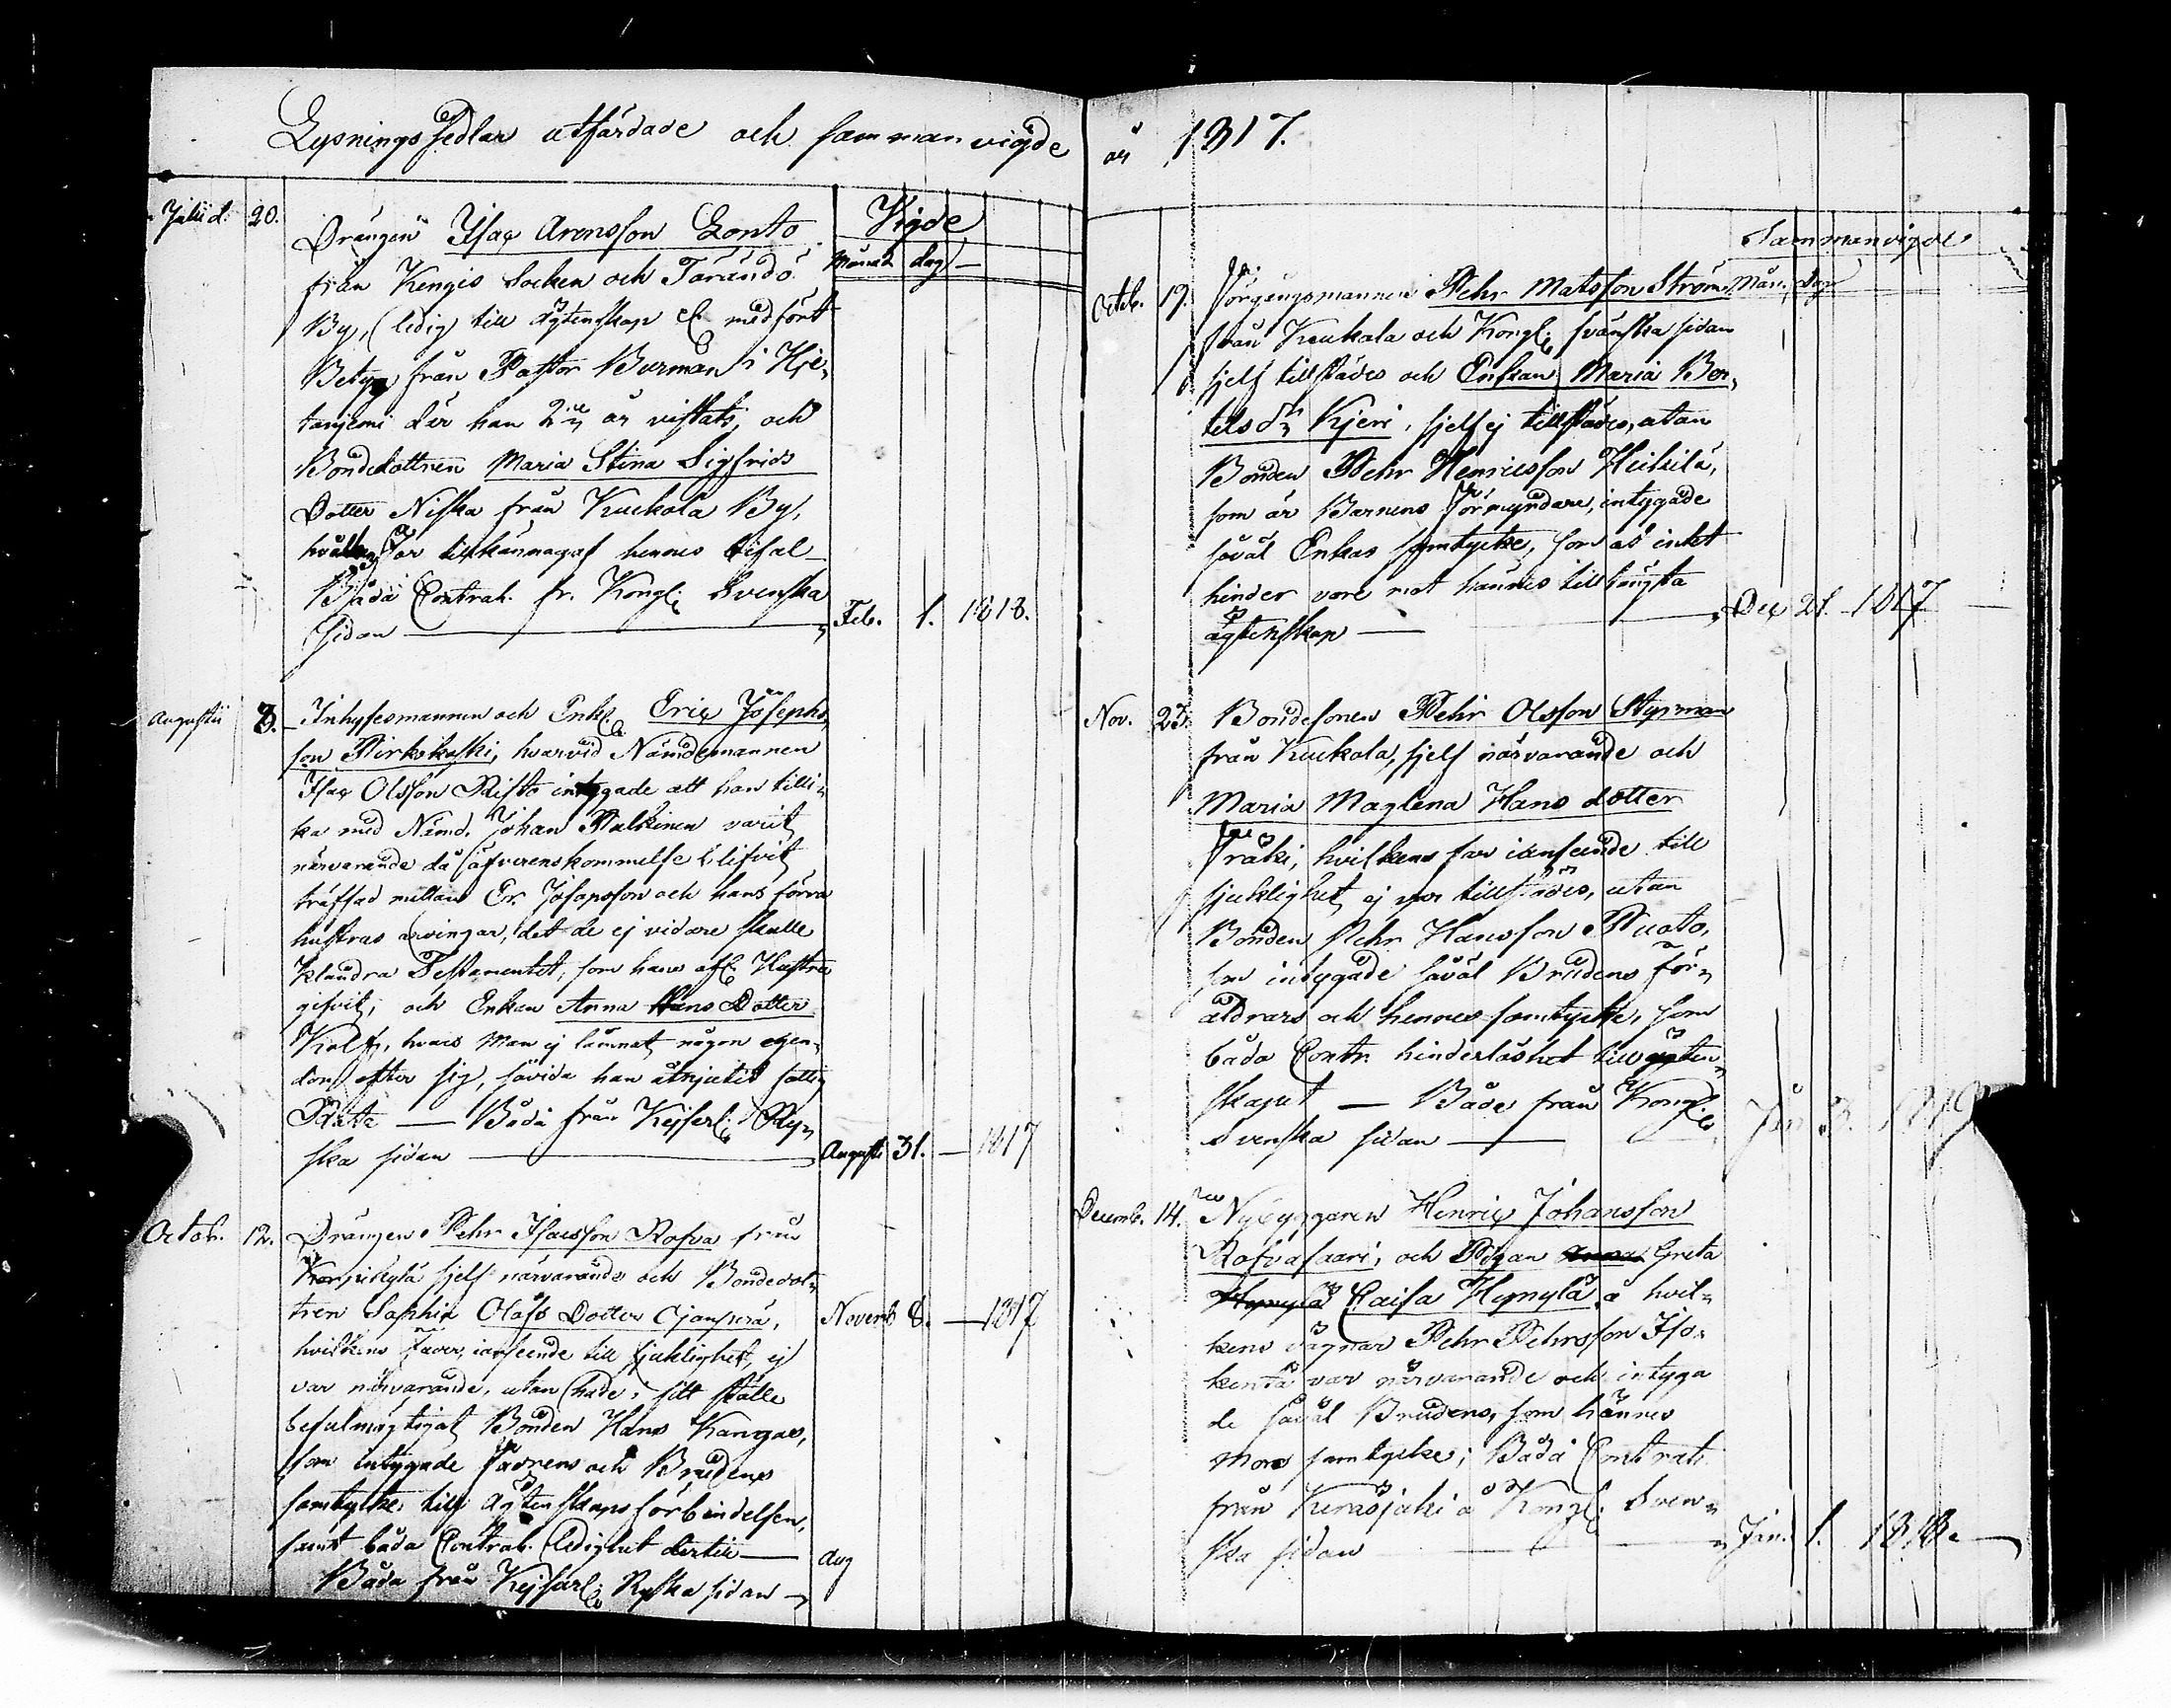 Lysnings sedlar utfärdade och sammanvigde
Julii d. 20.
Vigde
Månad dag
Drängen Isac Arensson Lonto
från Kengis Socken och Tärändö
By, (ledig till ägtenskap el. medfört
Betyg från Pastor Burman i Hje-
tanjemi der han 2ne år vistats, och
Bondedottren Maria Stina Sigfrids
Dotter Niska från Kuckola By,
far tillkännagaf hennes bifal
Båda Contrah. fr. Kongl. Svenska
sidan
Feb. 1. 1818.
Augustii 3.
Inhysesmannen och Enkl. Eric Josephs
son Kirkokoski, hvarvid Nämdemannen
Isac Olsson Risto intygade att han tilli-
ka med Nämd. Johan Palkinen varit
närvarande då öfverenskommelse blifvit
träffad mellan Er. Josapsson och hans förra
hustrus arvingar, det de ej vidare skulle
klandra Testamentet, som hans afl. Hustru
gifvit, och Enkan Anna Hans Dotter
Kolf, hvars Man ej lämnat någon egen-
dom efter sig, såvida han åtnjutit fattig
Båda från Kejserl. Ry-
ska sidan
Augusti 31. — 1817
Octob. 12.
Drängen Pehr Isacsson Rofva från
Korpikylä sjelf närvarande och Bondedot-
tren Sophia Olofs Dotter Ojanperä,
hvilkens Fader, i anseende till sjuklighet, ej
var närvarande, utan hade i sitt ställe
befulmägtigat Bonden Hans Kangas,
som intygade Fadrens och Brudens
samtycke till Ägtenskaps förbindelsen,
samt båda Contrah. ledighet dertill
Båda från Kejserl. Ryska sidan
Novemb 8. — 1817
Aug
år 1817.
Sammanvigde
Mån. dag
Octob. 19.
Förgångsmannen Pehr Matsson Ström
från Kuckola och Kongl. svänska sidan
sjelf tillstädes och Enkan Maria Ben-
tels dr Kjeri, sjelf ej tillstädes, utan
Bonden Pehr Henricsson Heikilä,
som är Barnens Förmyndare, intygade
såväl Enkas samtycke, som at intet
hinder vore mot hännes tillträgta
ägtenskap
Dec 21. 1817
Nov. 23.
Bondesonen Pehr Olsson Styrman
från Kuckola, sjelf närvarande och
Maria Maglena Hans dotter
Fräki, hvilkens far i anseende till
sjuklighet ej var tillstädes, utan
Bonden Pehr Hansson Ruoto,
som intygade såväl Brudens för-
äldrars och hennes samtycke, som
båda Contr. hinderlöshet till ägten-
skapet — Både från Kongl.
Svenska sidan
Jan 3. 1819
Decemb. 14.
Nybyggaren Henric Johansson
Rofvasaari, och Pigan Anna Greta
Hynylä Caisa Hynylä, å hvil-
kens vägnar Pehr Pehrsson Iso-
kentä var närvarande och intyga
de såväl Brudens, som hännes
mors samtycke; Båda Contrah.
från Kuresjoki å Kongl. Sven-
ska sidan
Jan. 1. 1818.